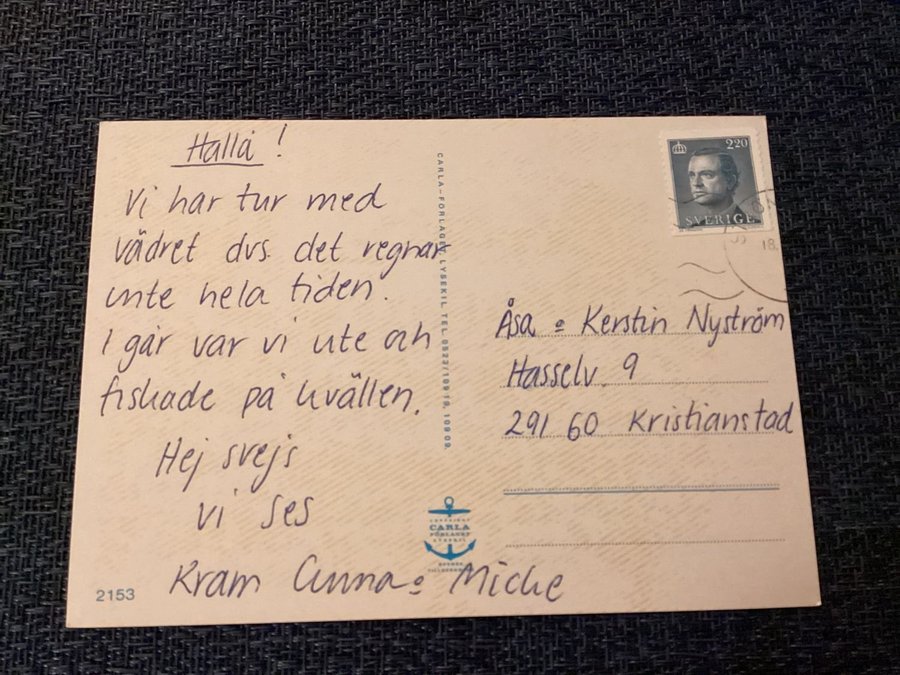 Hallå!
Vi har tur med
vädret dvs. det regnar
inte hela tiden.
I går var vi ute och
fiskade på kvällen.
Hej svejs
vi ses
Kram Anna o Micke
2153
CARLA-FÖRLAGET, LYSEKIL, TEL. 0523/109 19, 109 09.
CARLA
FÖRLAGET
LYSEKIL
220
SVERIGE
18.
Åsa o Kerstin Nyström
Hasselv. 9
291 60 Kristianstad